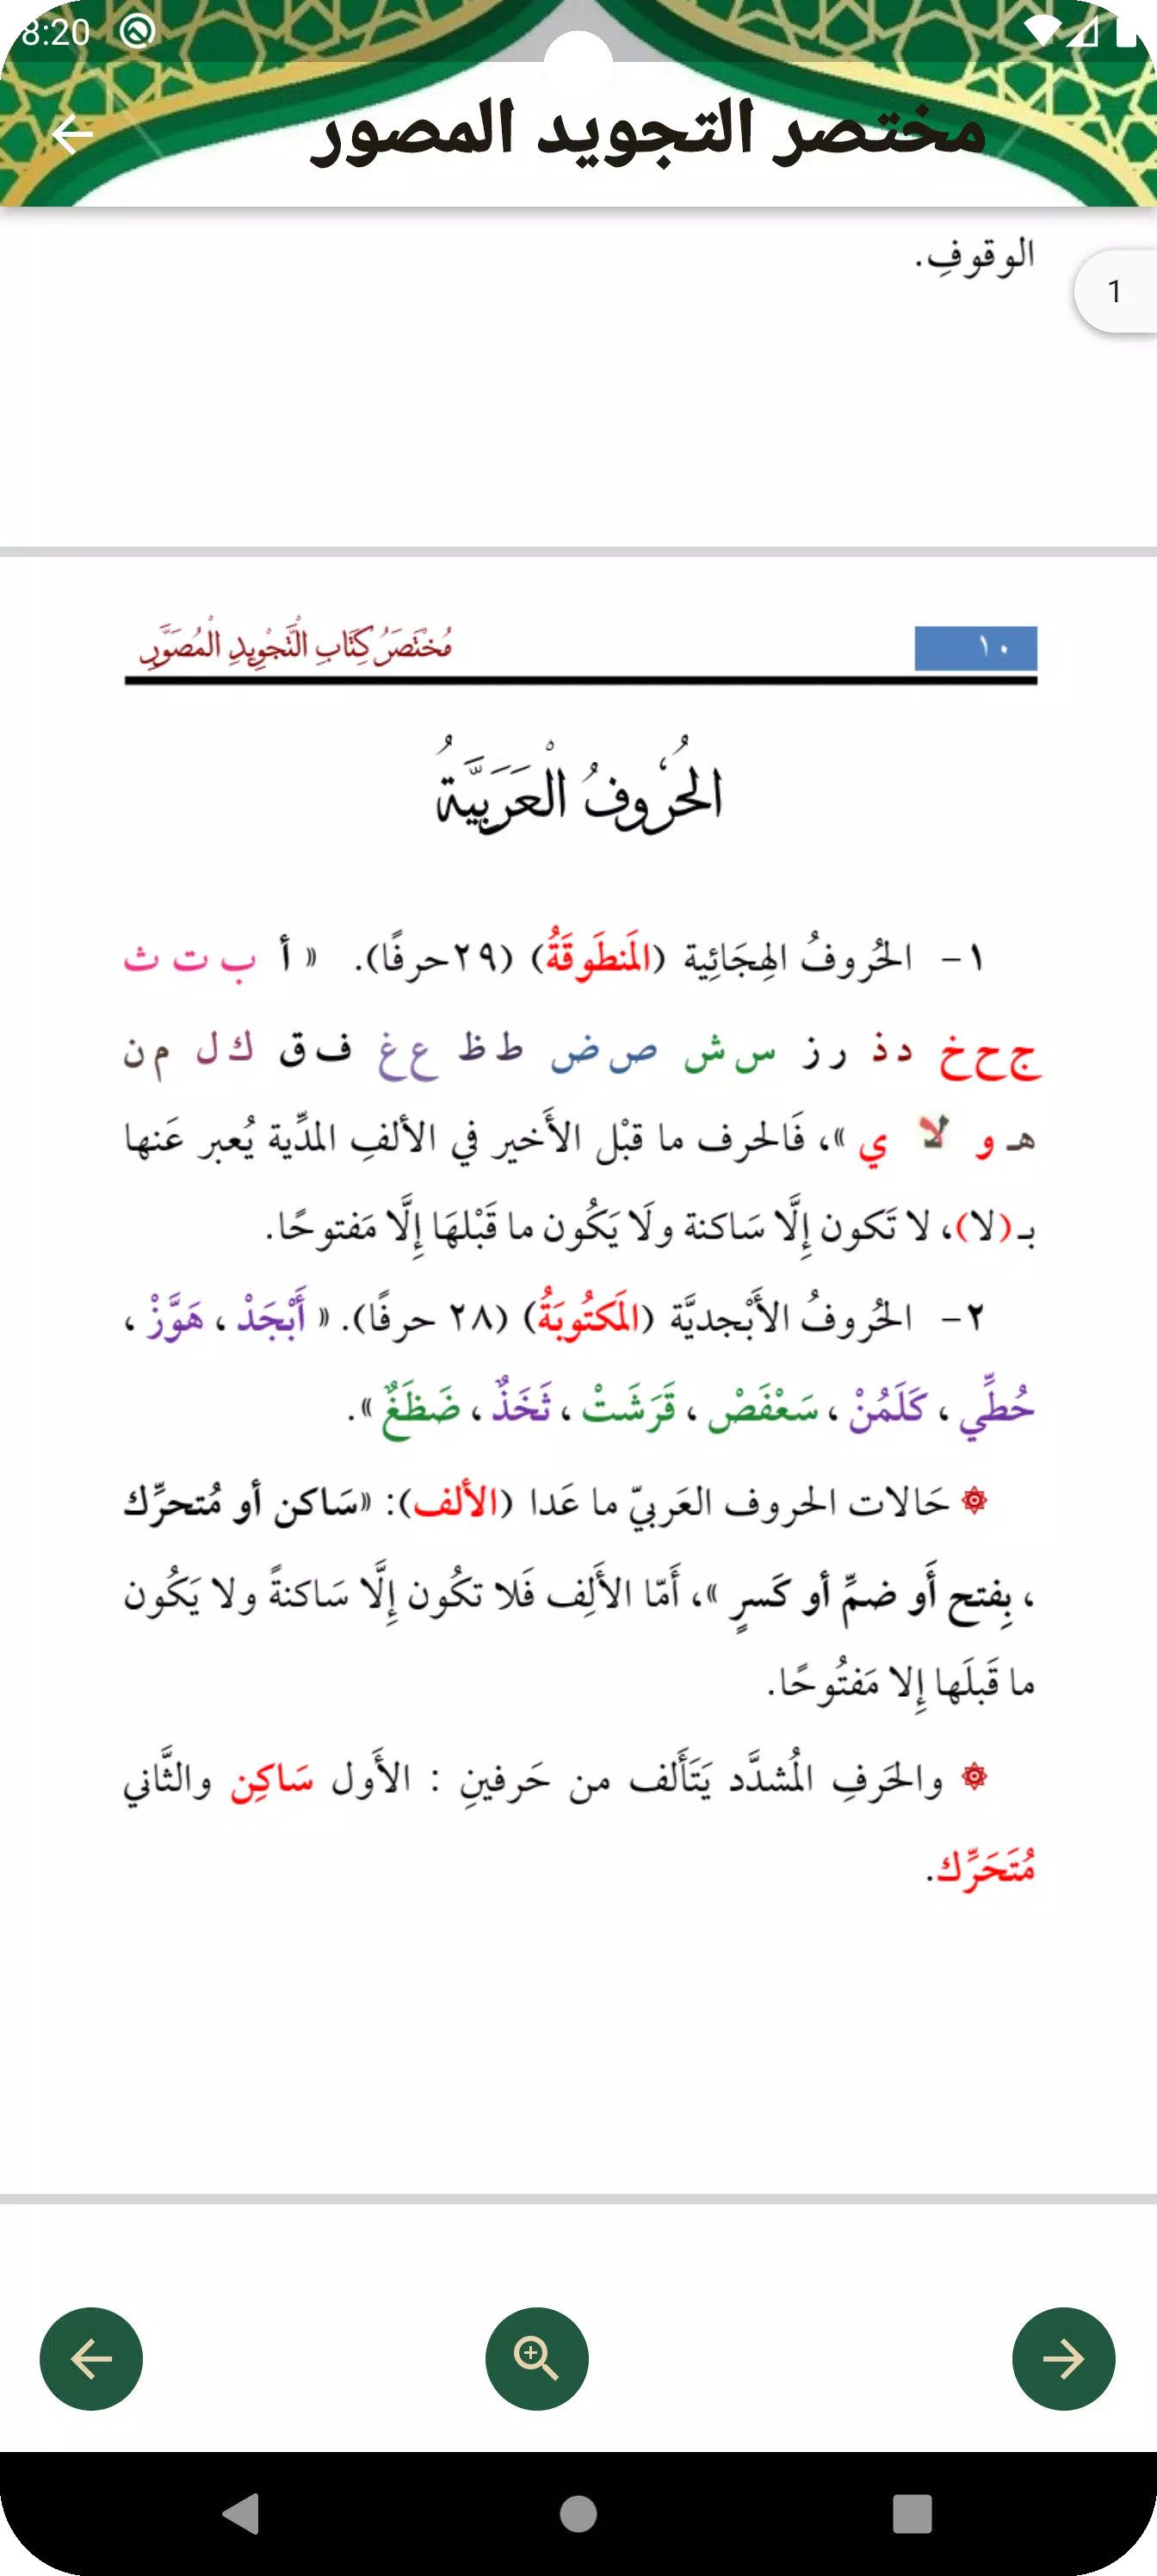 8:20
مختصر التجويد المصور
الوقوفِ.
1
١٠
مُخْتَصَرُ كِتَابِ التَّجْوِيدِ الْمُصَوَّرِ
الحُرُوفُ الْعَرَبِيَّةُ
١- الحُروفُ الهِجَائِية (المَنطَوقَةُ) (٢٩حرفًا). « أ ب ت ث
ج ح خ د ذ ر ز س ش ص ض ط ظ ع غ ف ق ك ل م ن
هـ و لا ي »، فَالحرف ما قبْل الأَخير في الألفِ المدِّية يُعبر عَنها
بـ(لا)، لا تَكون إِلَّا سَاكنة ولَا يَكُون ما قَبْلهَا إِلَّا مَفتوحًا.
٢- الحُروفُ الأَبْجديَّة (المَكتُوبَةُ) (٢٨ حرفًا). « أَبْجَدْ ، هَوَّزْ ،
حُطِّي ، كَلَمُنْ ، سَعْفَصْ ، قَرَشَتْ ، ثَخَذٌ ، ضَظَغٌ ».
حَالات الحروف العَربيّ ما عَدا (الألف): «سَاكن أو مُتحرِّك
، بِفتح أَو ضمٍّ أو كَسرٍ »، أَمّا الأَلِف فَلا تكُون إِلَّا سَاكنةً ولا يَكُون
ما قَبلَها إِلا مَفتُوحًا.
والحَرفِ المُشدَّد يَتَأَلف من حَرفينِ : الأَول سَاكِن والثَّاني
مُتَحَرِّك.